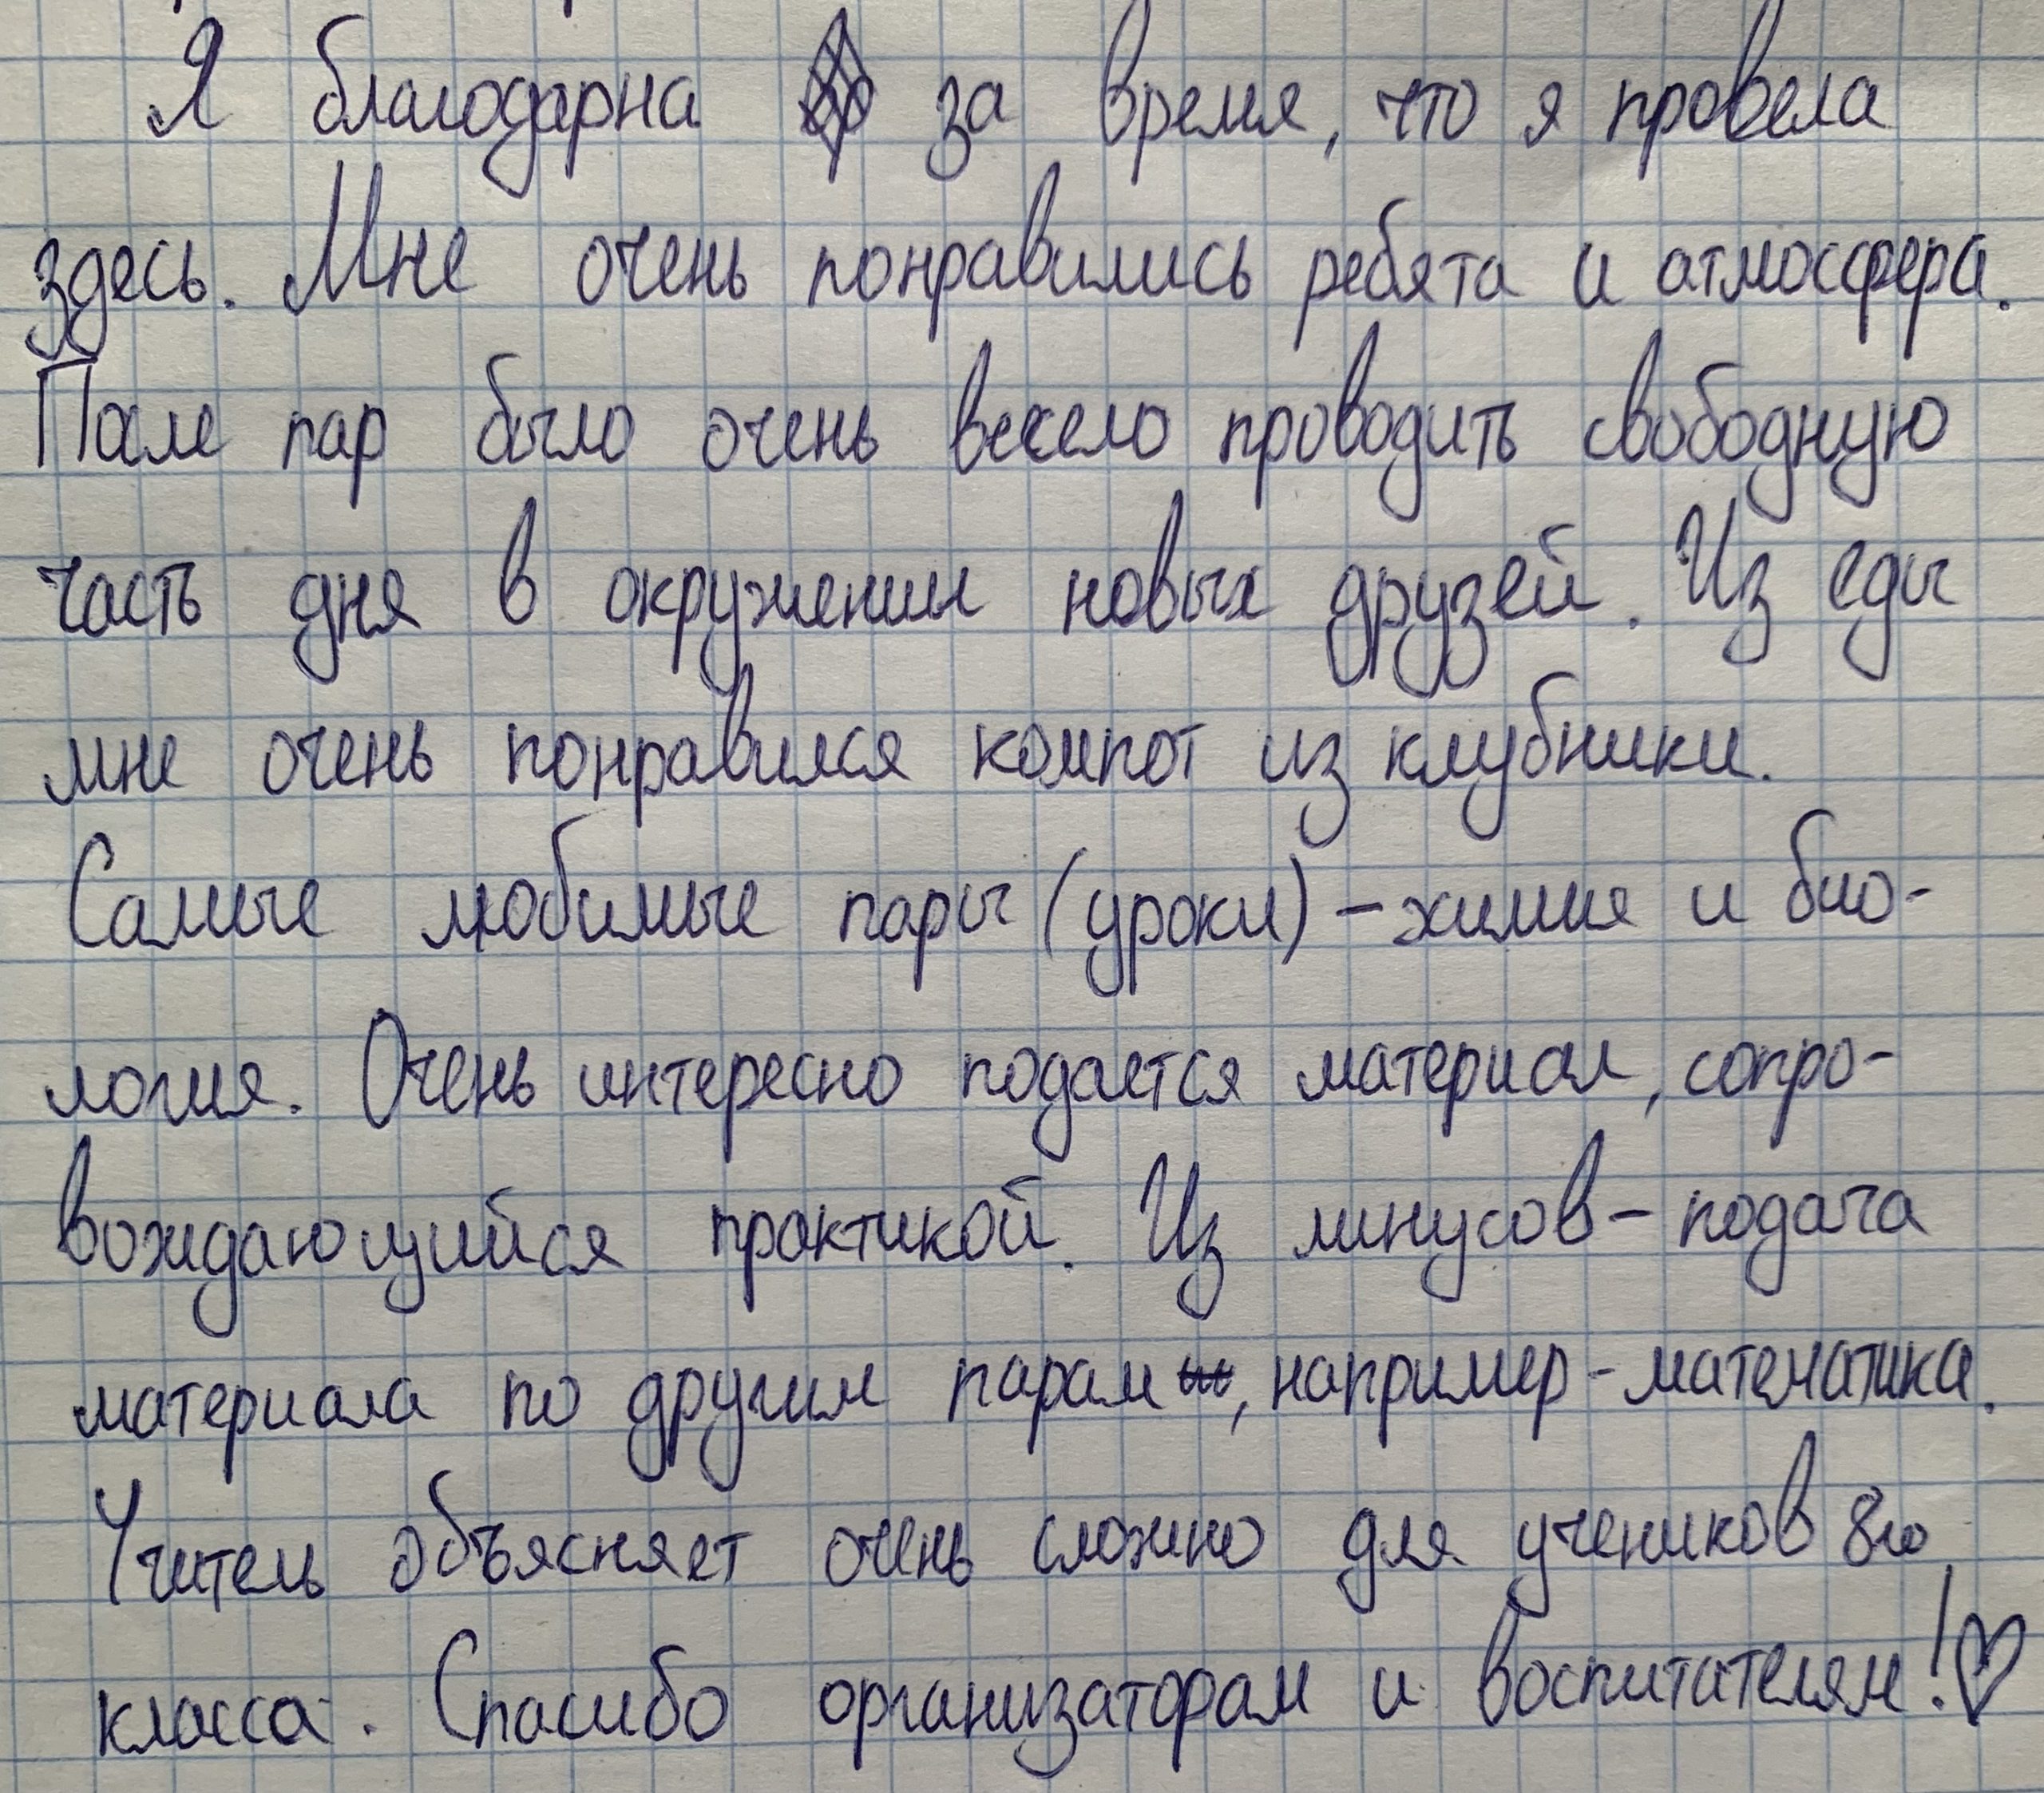 Я благодарна за время, что я провела
здесь. Мне очень понравились ребята и атмосфера.
После пар было очень весело проводить свободную
часть дня в окружении новых друзей. Из еды
мне очень понравился компот из клубники.
Самые любимые пары (уроки) – химия и био-
логия. Очень интересно подается материал, сопро-
вождающийся практикой. Из минусов – подача
материала по другим парам, например - математика.
Учитель объясняет очень сложно для учеников 8го
класса. Спасибо организаторам и воспитателям!♡